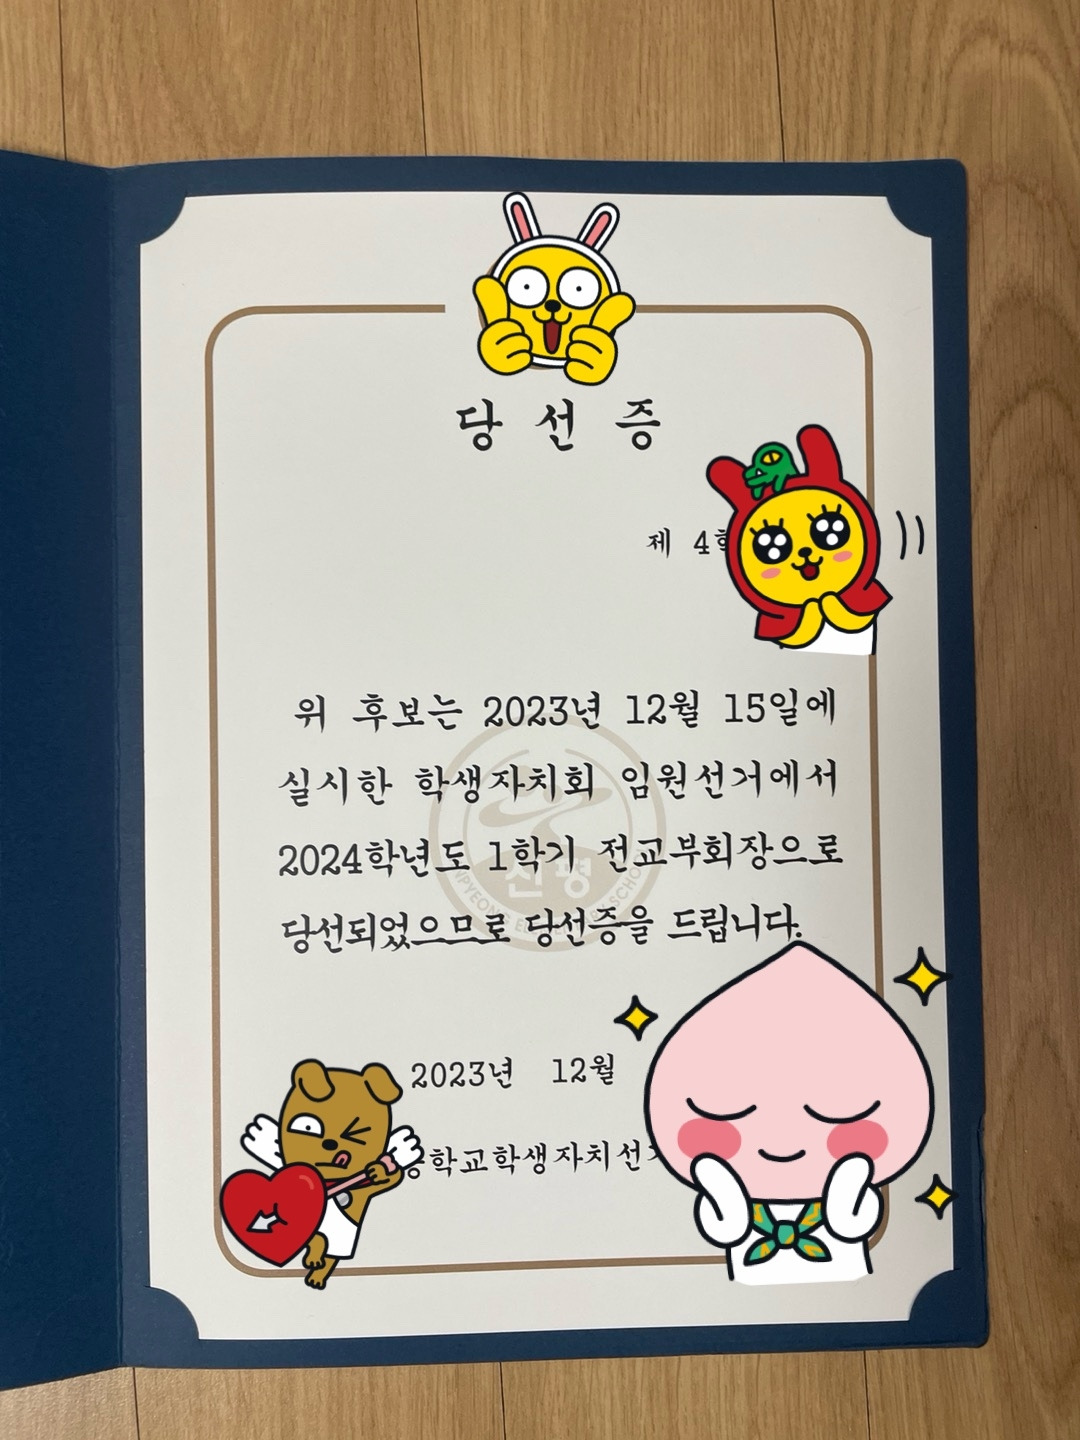 당 선 증
제 4학
위 후보는 2023년 12월 15일에
실시한 학생자치회 임원선거에서
2024학년도 1학기 전교부회장으로
당선되었으므로 당선증을 드립니다.
신평
PYEONG ELEMENTARY SCHOOL
2023년 12월
등학교학생자치선거